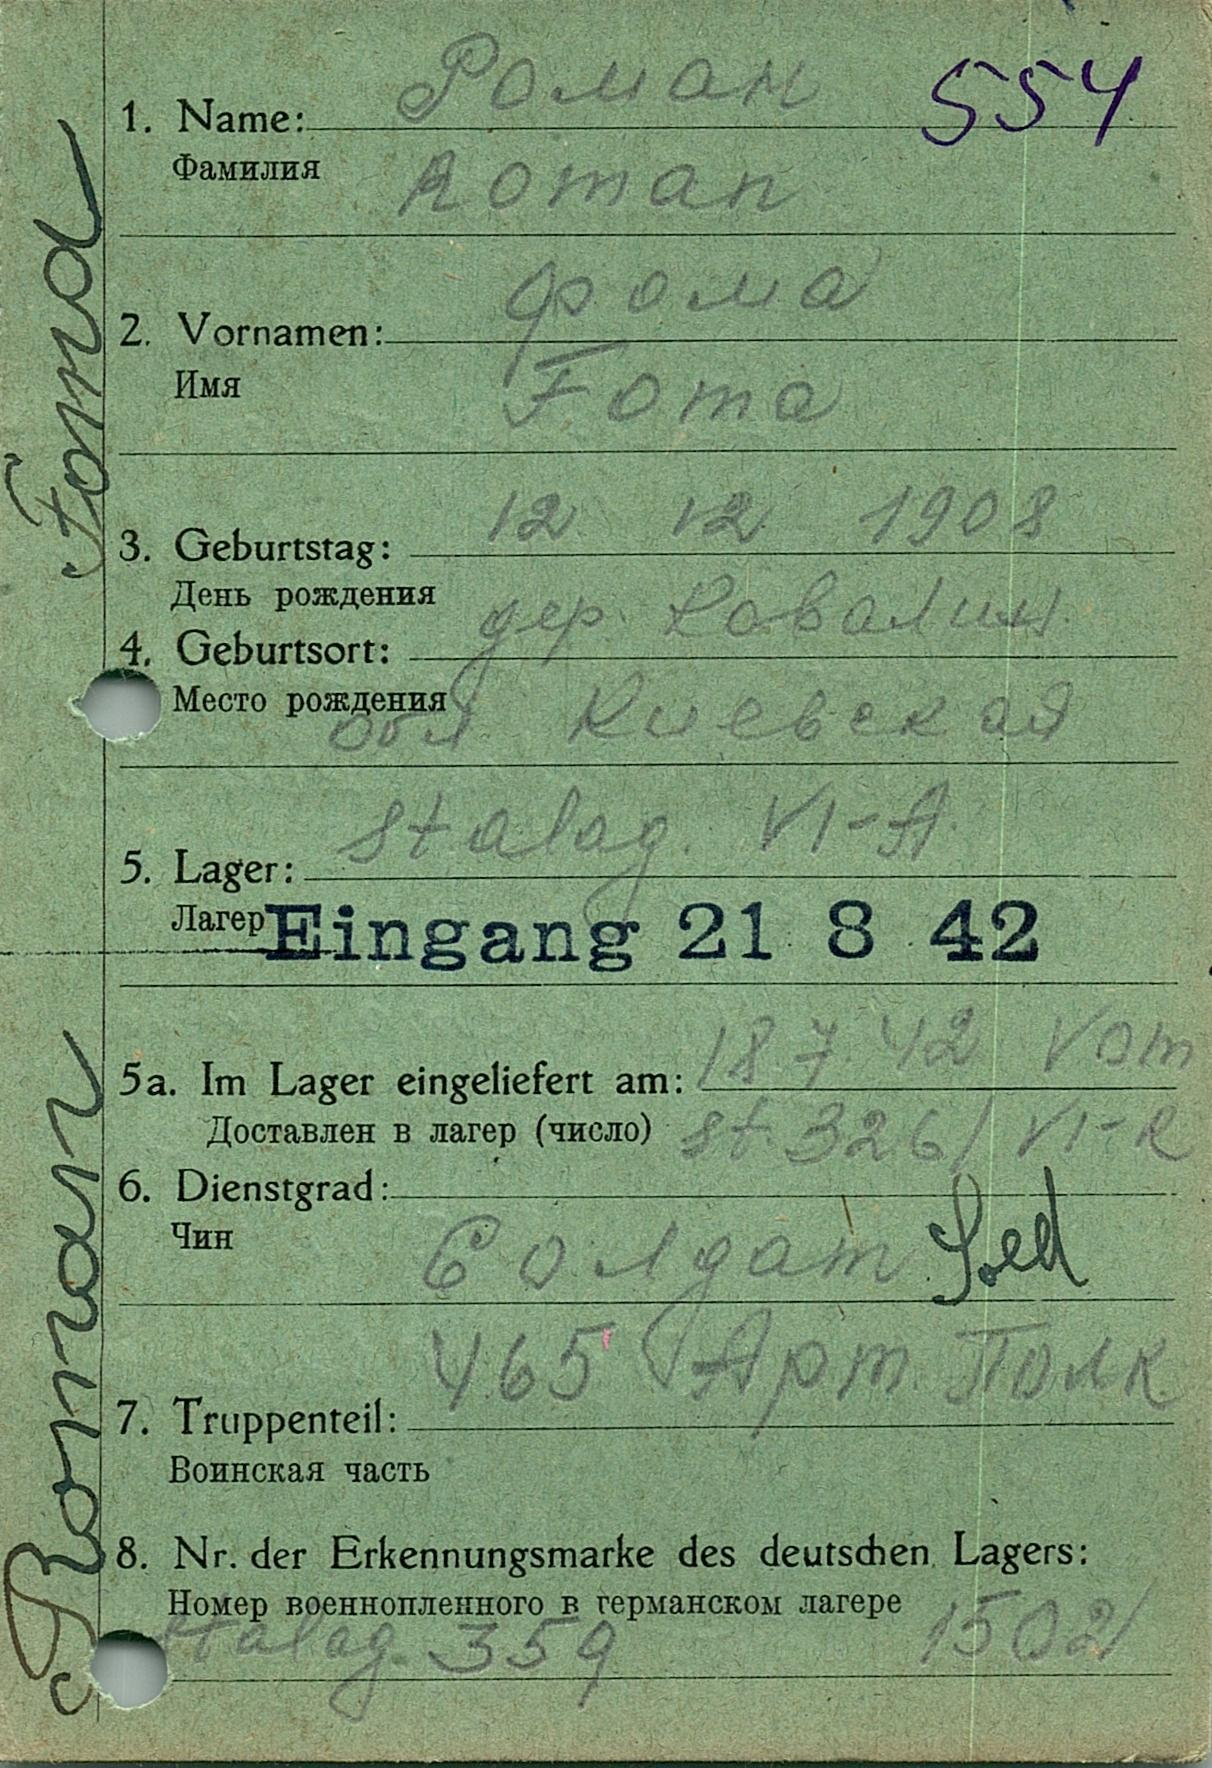 Роман 554
1. Name:
Фамилия Roman
Фома
2. Vornamen:
Имя Foma
12 12 1908
3. Geburtstag:
День рождения
дер. Ковалин
4. Geburtsort:
Место рождения
обл Киевская
Stalag. VI-A
5. Lager:
Лагер
Eingang 21 8 42
5a. Im Lager eingeliefert am: 18.7.42 vom
Доставлен в лагер (число) St. 326/VI-K
6. Dienstgrad:
Чин Солдат Sold
465 Арт. Полк
7. Truppenteil:
Воинская часть
8. Nr. der Erkennungsmarke des deutschen Lagers:
Номер военнопленного в германском лагере
Stalag. 359 1502
Roman Foma